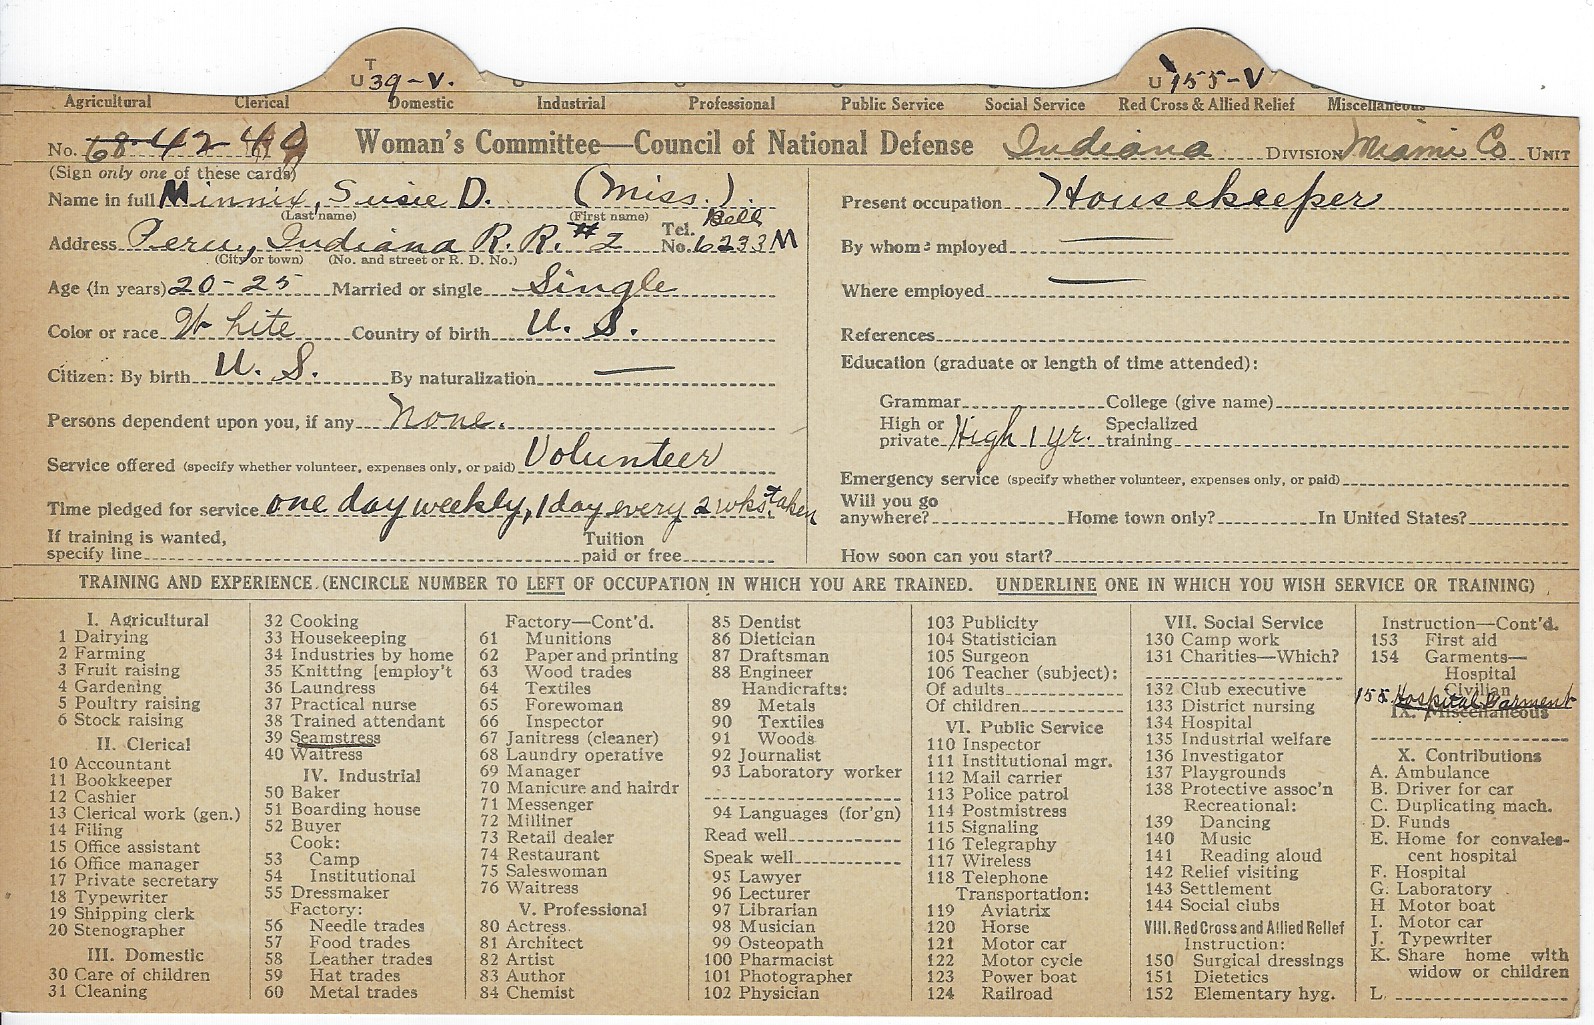 T
U 39-V.
U 155-V
Agricultural Clerical Domestic Industrial Professional Public Service Social Service Red Cross & Allied Relief Miscellaneous
No. 68 42 40 Woman's Committee—Council of National Defense Indiana DIVISION Miami Co UNIT
(Sign only one of these cards)
Name in full Minnix, Susie D. (Miss.)
(Last name) (First name)
Address Peru, Indiana R. R. #2 Tel. No. Bell 6233M
(City or town) (No. and street or R. D. No.)
Age (in years) 20-25 Married or single Single
Color or race White Country of birth U. S.
Citizen: By birth U. S. By naturalization —
Persons dependent upon you, if any None.
Service offered (specify whether volunteer, expenses only, or paid) Volunteer
Time pledged for service one day weekly, 1 day every 2 wks. taken
If training is wanted, specify line Tuition paid or free
Present occupation Housekeeper
By whom employed —
Where employed —
References
Education (graduate or length of time attended):
Grammar College (give name)
High or private High 1 yr. Specialized training
Emergency service (specify whether volunteer, expenses only, or paid)
Will you go anywhere? Home town only? In United States?
How soon can you start?
TRAINING AND EXPERIENCE. (ENCIRCLE NUMBER TO LEFT OF OCCUPATION IN WHICH YOU ARE TRAINED. UNDERLINE ONE IN WHICH YOU WISH SERVICE OR TRAINING)
I. Agricultural
1 Dairying
2 Farming
3 Fruit raising
4 Gardening
5 Poultry raising
6 Stock raising
II. Clerical
10 Accountant
11 Bookkeeper
12 Cashier
13 Clerical work (gen.)
14 Filing
15 Office assistant
16 Office manager
17 Private secretary
18 Typewriter
19 Shipping clerk
20 Stenographer
III. Domestic
30 Care of children
31 Cleaning
32 Cooking
33 Housekeeping
34 Industries by home
35 Knitting [employ't
36 Laundress
37 Practical nurse
38 Trained attendant
39 Seamstress
40 Waitress
IV. Industrial
50 Baker
51 Boarding house
52 Buyer
Cook:
53 Camp
54 Institutional
55 Dressmaker
Factory:
56 Needle trades
57 Food trades
58 Leather trades
59 Hat trades
60 Metal trades
Factory—Cont'd.
61 Munitions
62 Paper and printing
63 Wood trades
64 Textiles
65 Forewoman
66 Inspector
67 Janitress (cleaner)
68 Laundry operative
69 Manager
70 Manicure and hairdr
71 Messenger
72 Milliner
73 Retail dealer
74 Restaurant
75 Saleswoman
76 Waitress
V. Professional
80 Actress
81 Architect
82 Artist
83 Author
84 Chemist
85 Dentist
86 Dietician
87 Draftsman
88 Engineer
Handicrafts:
89 Metals
90 Textiles
91 Woods
92 Journalist
93 Laboratory worker
94 Languages (for'gn)
Read well
Speak well
95 Lawyer
96 Lecturer
97 Librarian
98 Musician
99 Osteopath
100 Pharmacist
101 Photographer
102 Physician
103 Publicity
104 Statistician
105 Surgeon
106 Teacher (subject):
Of adults
Of children
VI. Public Service
110 Inspector
111 Institutional mgr.
112 Mail carrier
113 Police patrol
114 Postmistress
115 Signaling
116 Telegraphy
117 Wireless
118 Telephone
Transportation:
119 Aviatrix
120 Horse
121 Motor car
122 Motor cycle
123 Power boat
124 Railroad
VII. Social Service
130 Camp work
131 Charities—Which?
132 Club executive
133 District nursing
134 Hospital
135 Industrial welfare
136 Investigator
137 Playgrounds
138 Protective assoc'n
Recreational:
139 Dancing
140 Music
141 Reading aloud
142 Relief visiting
143 Settlement
144 Social clubs
VIII. Red Cross and Allied Relief
Instruction:
150 Surgical dressings
151 Dietetics
152 Elementary hyg.
Instruction—Cont'd.
153 First aid
154 Garments—
Hospital
Civilian
155 Hospital Garment
IX. Miscellaneous
X. Contributions
A. Ambulance
B. Driver for car
C. Duplicating mach.
D. Funds
E. Home for convales-
cent hospital
F. Hospital
G. Laboratory
H Motor boat
I. Motor car
J. Typewriter
K. Share home with
widow or children
L.